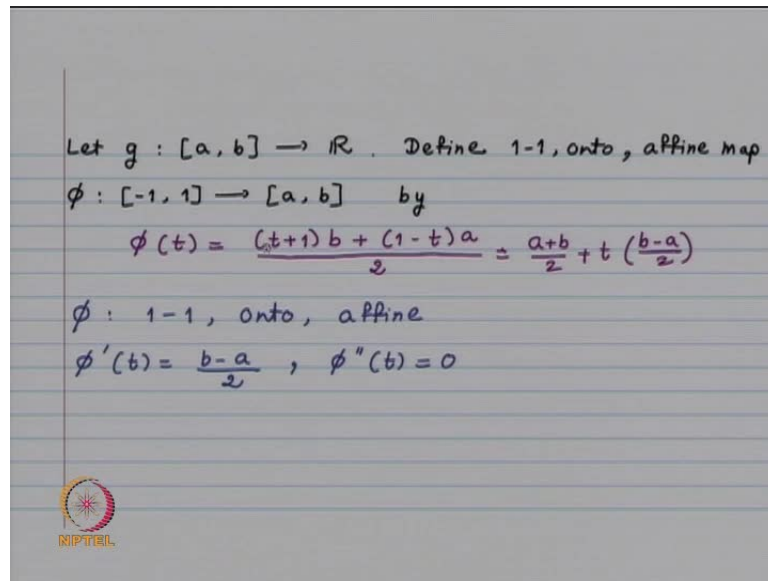 Let g : [a, b] → ℝ. Define 1-1, onto, affine map
φ : [-1, 1] → [a, b] by
φ(t) = ((t+1) b + (1 - t) a)/2 = (a+b)/2 + t ((b-a)/2)
φ : 1-1, onto, affine
φ'(t) = (b-a)/2 , φ''(t) = 0
NPTEL